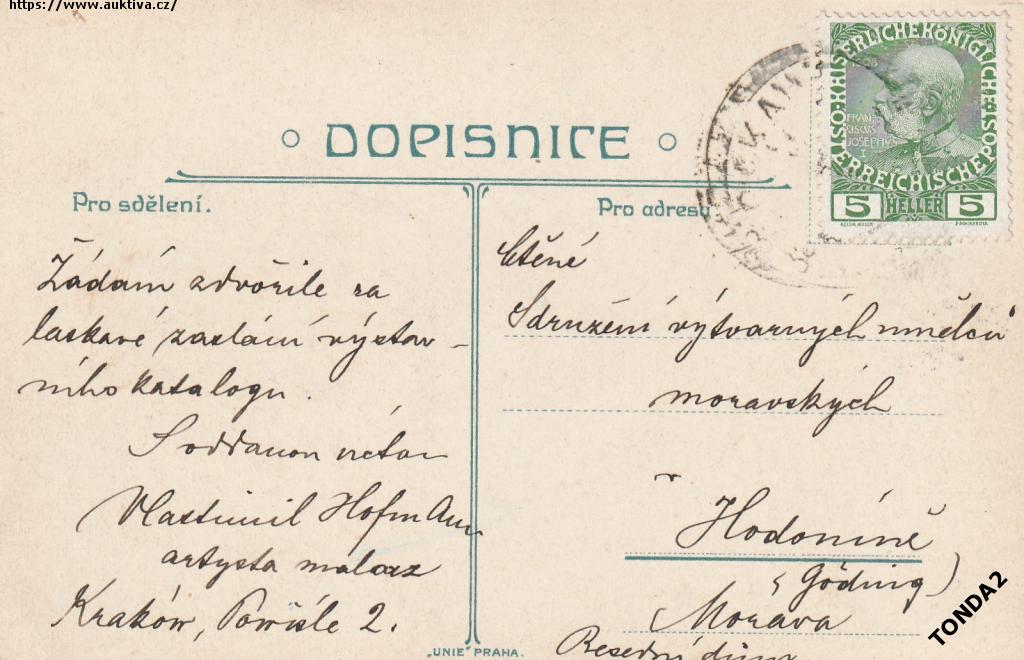 https://www.auktiva.cz/
DOPISNICE
Pro sdělení.
Žádám zdvořile za
laskavé zaslání výstav-
ního katalogu.
S oddanou úctou
Vlastimil Hofmann
artysta malarz
Kraków, Powiśle 2.
„UNIE“ PRAHA.
Pro adresu
Ctěné
Sdružení výtvarných umělců
moravských
Hodoníně
(Göding)
Morava
Besední dům
KAISERLICHE KÖNIGLICHE
ÖSTERREICHISCHE POST
1908
FRAN
CISCUS
JOSEPHUS
5 HELLER 5
TONDA2